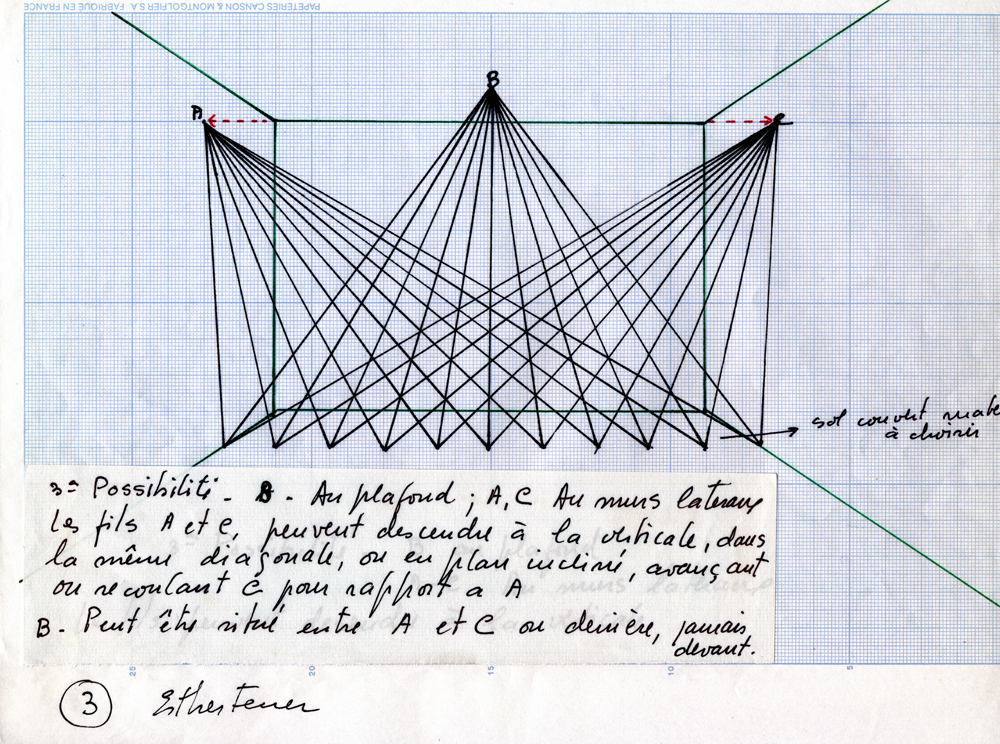 PAPETERIES CANSON & MONTGOLFIER S.A. FABRIQUÉ EN FRANCE
B
A
C
sol couvert
à choisir
3= Possibilité - B - Au plafond ; A, C Au murs lateraux
Les fils A et C, peuvent descendre à la verticale, dans
la même diagonale, ou en plan incliné, avançant
ou reculant C pour rapport a A
B - Peut être situé entre A et C ou derière, jamais
devant.
25
20
15
10
5
3